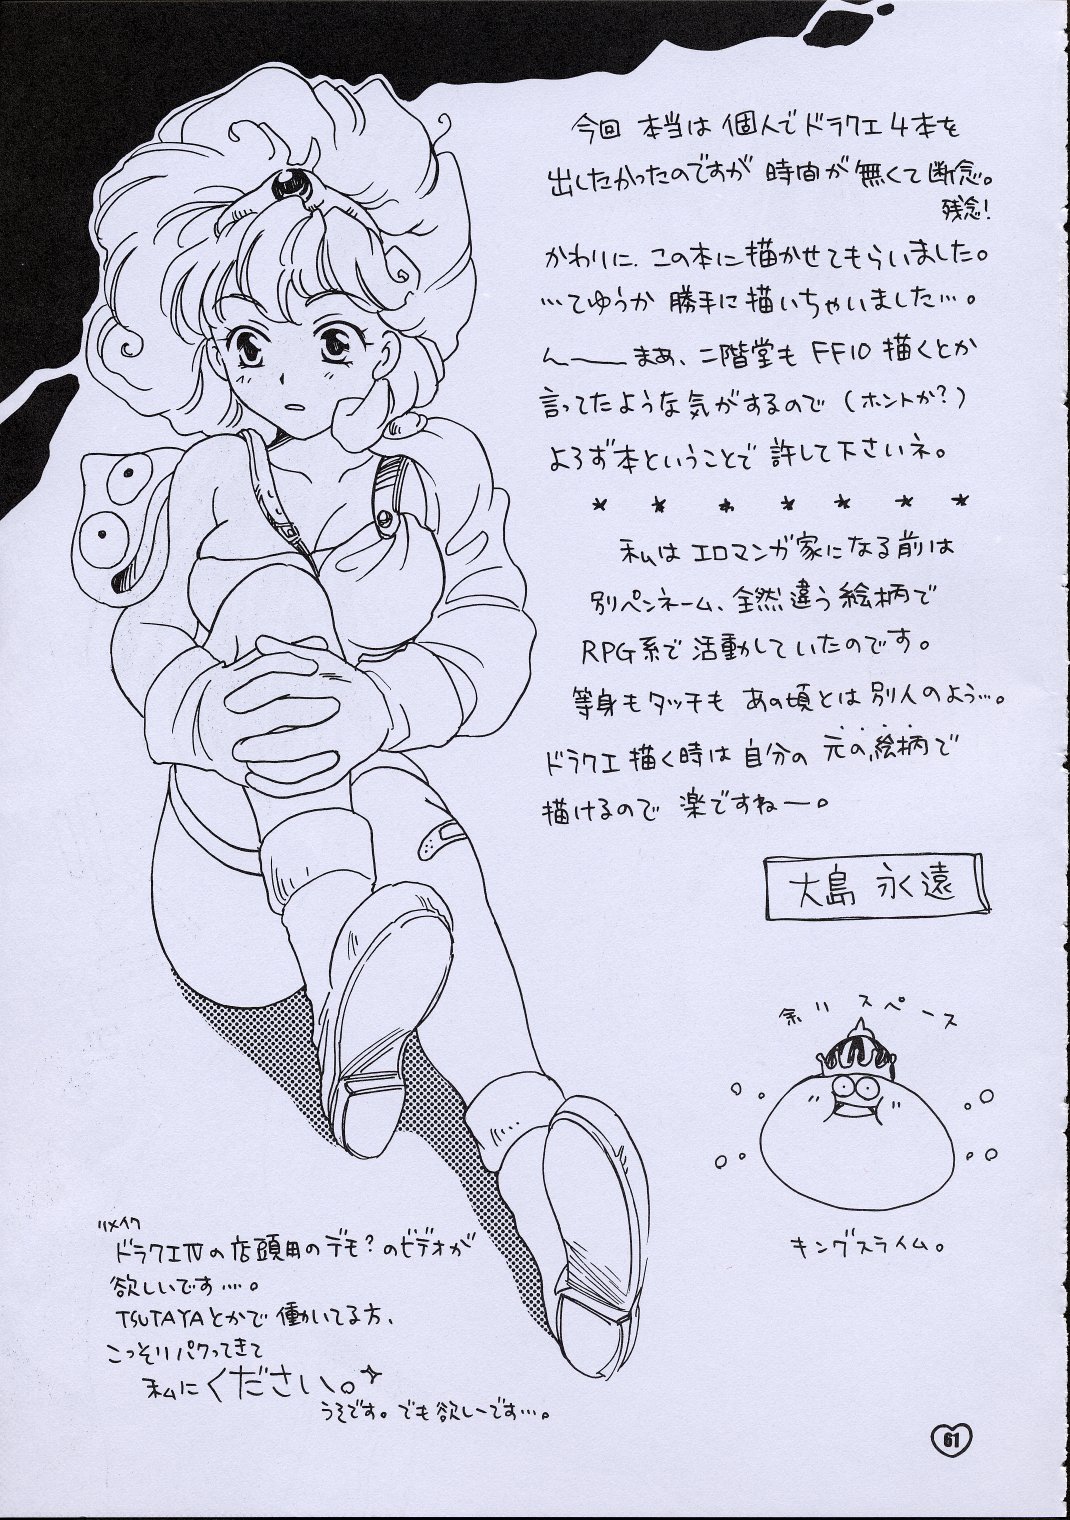 今回 本当は 個人でドラクエ4本を
出したかったのですが 時間が 無くて断念。
残念!
かわりに、この本に描かせてもらいました。
…てゆうか 勝手に描いちゃいました…。
ん——まあ、二階堂も FF10 描くとか
言ってたような気がするので (ホントか?)
よろず本ということで 許して下さいネ。
* * * * * * *
私は エロマンガ家になる前は
別ペンネーム、全然違う絵柄で
RPG系で活動していたのです。
等身もタッチも あの頃とは 別人のよう…。
ドラクエ描く時は自分の 元の絵柄で
描けるので 楽ですねー。
大島 永遠
余りスペース
キングスライム。
リメイク
ドラクエⅣの店頭用のデモ?のビデオが
欲しいです…。
TSUTAYAとかで 働いてる方、
こっそりパクってきて
私にください。
うそです。でも欲しーです…。
61